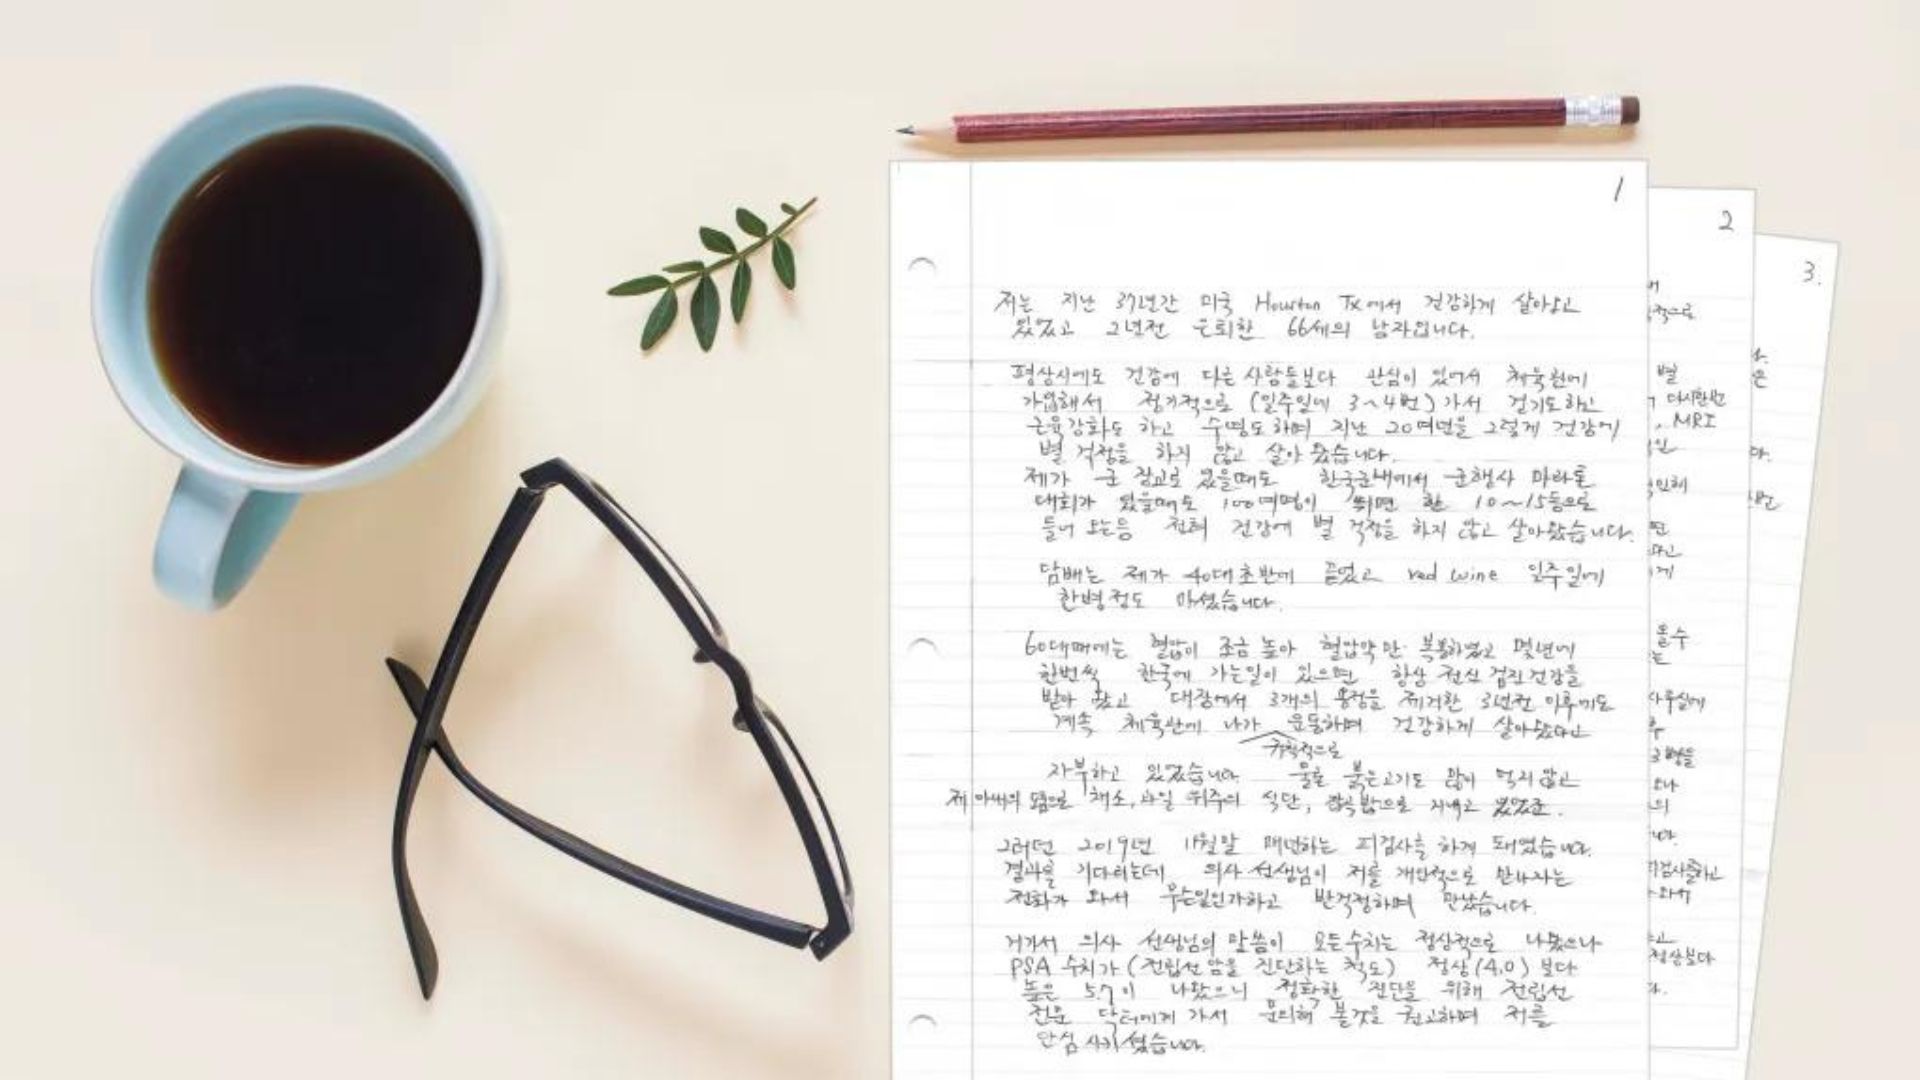 1
저는 지난 37년간 미국 Houston TX에서 건강하게 살아오고
있었고 2년전 은퇴한 66세의 남자입니다.
평상시에도 건강에 다른 사람들보다 관심이 있어서 체육관에
가입해서 정기적으로 (일주일에 3~4번) 가서 걷기도하고
근육강화도 하고 수영도하며 지난 20여년을 그렇게 건강에
별 걱정을 하지 않고 살아 왔습니다.
제가 군 장교로 있을때도 한국군내에서 군행사 마라톤
대회가 있을때도 100여명이 뛰면 한 10~15등으로
들어 오는등 전혀 건강에 별 걱정을 하지 않고 살아왔습니다.
담배는 제가 40대초반에 끊었고 red wine 일주일에
한병정도 마셨습니다.
60대때에는 혈압이 조금 높아 혈압약만 복용하였고 몇년에
한번씩 한국에 가는일이 있으면 항상 전신 검진건강을
받아 왔고 대장에서 3개의 용정을 제거한 3년전 이후에도
계속 체육관에 나가 운동하며 건강하게 살아왔다고
규칙적으로
자부하고 있었습니다 물론 붉은고기도 많이 먹지않고
제 아내의 도움으로 채소, 과일 위주의 식단, 잡곡밥으로 지내고 있었죠.
그러던 2019년 11월말 매년하는 피검사를 하게 돼었습니다.
결과를 기다리는데 의사 선생님이 저를 개인적으로 만나자는
전화가 와서 무슨일인가하고 반걱정하며 만났습니다.
거기서 의사 선생님의 말씀이 모든수치는 정상적으로 나왔으나
PSA 수치가 (전립선암을 진단하는 척도) 정상(4.0) 보다
높은 5.7이 나왔으니 정확한 진단을 위해 전립선
전문 닥터에게 가서 문의해 볼것을 권고하며 저를
안심 시키셨습니다.
2
별
다시한번
, MRI
올수
3병을
피검사를하고
와서
정상보다
3.